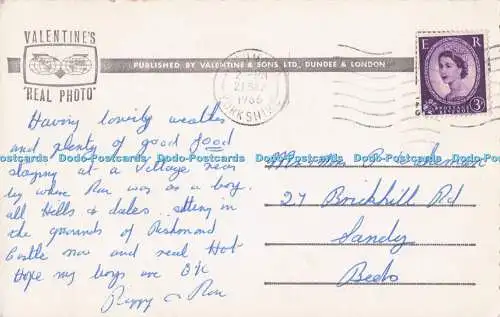 VALENTINE'S
"REAL PHOTO"
PUBLISHED BY VALENTINE & SONS LTD., DUNDEE & LONDON
21 SEP
1966
YORKSHIRE
E R
3D
Having lovely weather
and plenty of good food
staying at a Village near
by where Ron was as a boy.
all Hills & dales. sitting in
the grounds of Richmond
Castle now and real Hot
Hope my boys are OK
& Ron
27 Brickhill Rd
Sandy
Beds
Dodo-Postcards Dodo-Postcards Dodo-Postcards Dodo-Postcards Dodo-Postcards